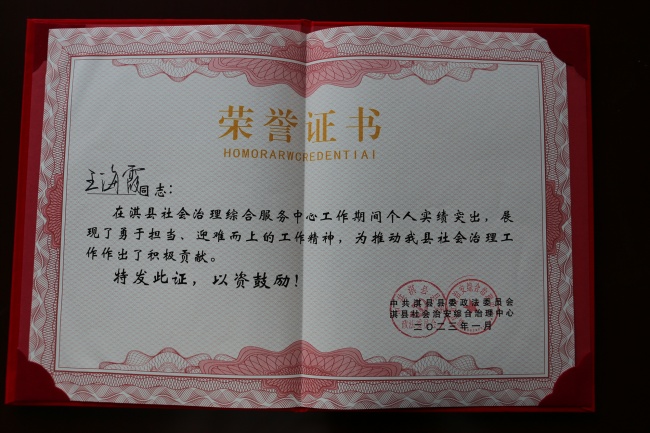 荣誉证书
HOMORARWCREDENTIAI
王海霞同志：
在淇县社会治理综合服务中心工作期间个人实绩突出，展
现了勇于担当、迎难而上的工作精神，为推动我县社会治理工
作作出了积极贡献。
特发此证，以资鼓励！
中共淇县县委政法委员会
淇县社会治安综合治理中心
二〇二三年一月